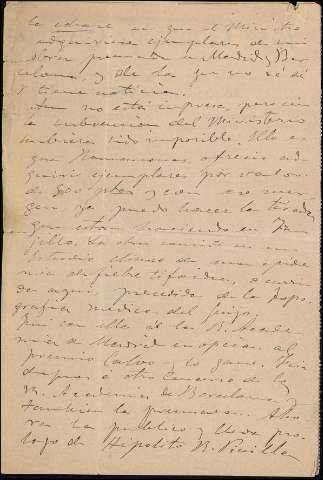 la          es que el Ministro
adquiriera ejemplares de mi
obra premiada en Madrid y Bar
celona, y de la que no sé si
V tiene noticia.
Aun no está impresa, pero sin
la subvención del Ministerio
hubiera sido imposible. Ello es
que Romanones ofreció ad
quirir ejemplares por valor
de 500 ptas y con ese
         ya puedo hacer la tirada
que están haciendo en Tru
jillo. La obra consiste en un
Estudio clínico de una epide
mia de fiebre tifoidea, ocurri
da aquí, precedida de la Topo
grafía médica del
Fui con ella a la R. Acade
mia de Madrid en opción al
premio Calvo y lo gané. Fui
después a otro Concurso de la
R. Academia de Barcelona y
también la premiaron. Aho
ra la publico y lleva pró
logo de Hipólito R. Pinilla